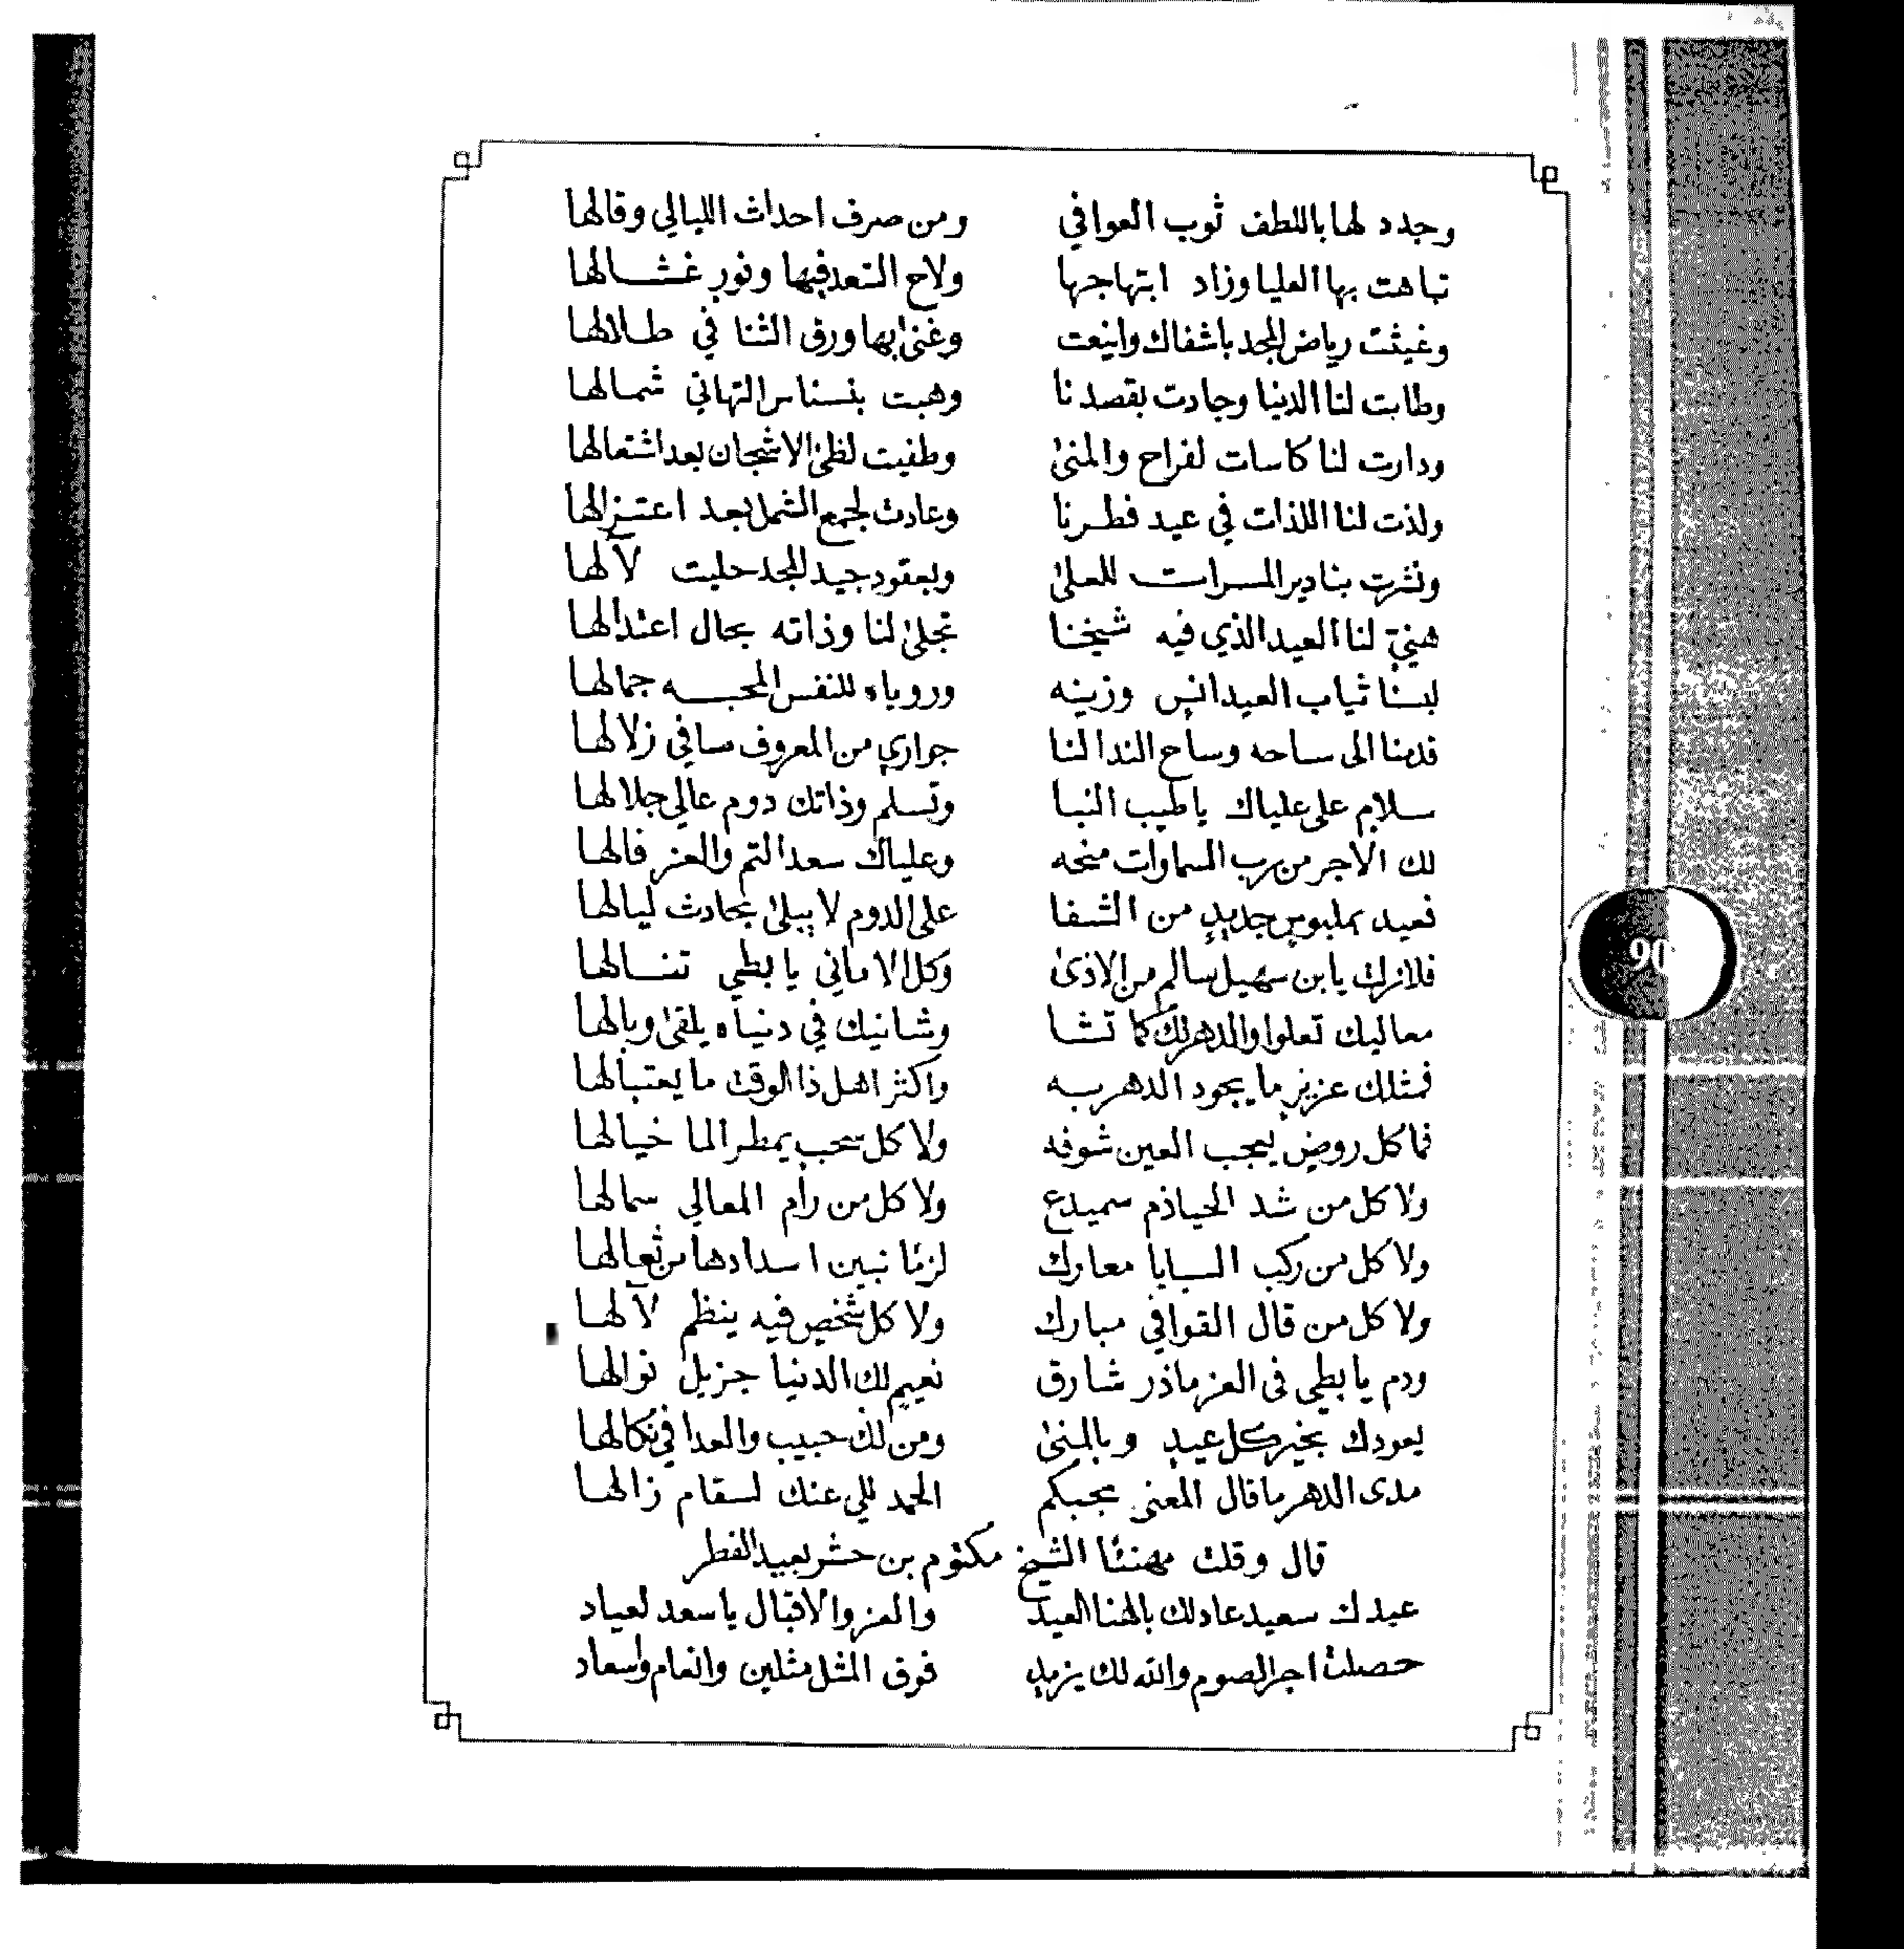 وجدد لها باللطف ثوب العوافي ومن صرف احداث الليالي وقالها
تباهت بها العليا وزاد ابتهاجها ولاح السعد فيها ونور غشالها
وغيثت رياض المجد باشفاك وانيعت وغنى بها ورق الثنا في طلالها
وطابت لنا الدنيا وجادت بقصدنا وهبت بنسناس التهاني شمالها
ودارت لنا كاسات لفراح والمنى وطفيت لظى الاشجان بعد اشتعالها
ولذت لنا اللذات في عيد فطرنا وعادت لجمع الشمل بعد اعتزالها
ونثرت بنادير المسرات للعلى وبعقود جيد المجد حليت لآلها
هنيئ لنا العيد الذي فيه شيخنا تجلى لنا وذاته بحال اعتدالها
لبسنا ثياب العيد انس وزينه وروياه للنفس المحبه جمالها
قدمنا الى ساحه وساح الندا لنا جواري من المعروف سافي زلالها
سلام على علياك ياطيب النبا وتسلم وذاتك دوم عالي جلالها
لك الاجر من رب السماوات منحه وعلياك سعد التم والعز فالها
فعيد بملبوس جديد من الشفا على الدوم لا يبلى بحادث ليالها
فلانرك يابن سهيل سالم من الاذى وكل الاماني يا بطي تنالها
معاليك تعلوا والدهر لك كما تشا وشانيك في دنياه يلقى وبالها
فمثلك عزيز ما يجود الدهر به واكثر اهل ذا الوقت ما يعتبالها
فما كل روض يعجب العين شوفه ولا كل سحب يمطر الما خيالها
ولا كل من شد الحياذم سميدع ولا كل من رام المعالي سمالها
ولا كل من ركب السبايا معارك لزما نبين اسدادها من ثعالها
ولا كل من قال القوافي مبارك ولا كل شخص فيه ينظم لآلها
ودم يا بطي في العز ماذر شارق نعيم لك الدنيا جزيل نوالها
يعودك بخير كل عيد وبالمنى ومن لك حبيب والعدا في نكالها
مدى الدهر ما قال المعنى بحبكم الحمد للي عنك لسقام زالها
قال وقلت مهنئا الشيخ مكتوم بن حشر بعيد الفطر
عيدك سعيد عاد لك بالهنا العيد والعز والاقبال يا سعد لعياد
حصلت اجر الصوم والله لك يزيد فوق المثل مثلين وانعام واسعاد
90